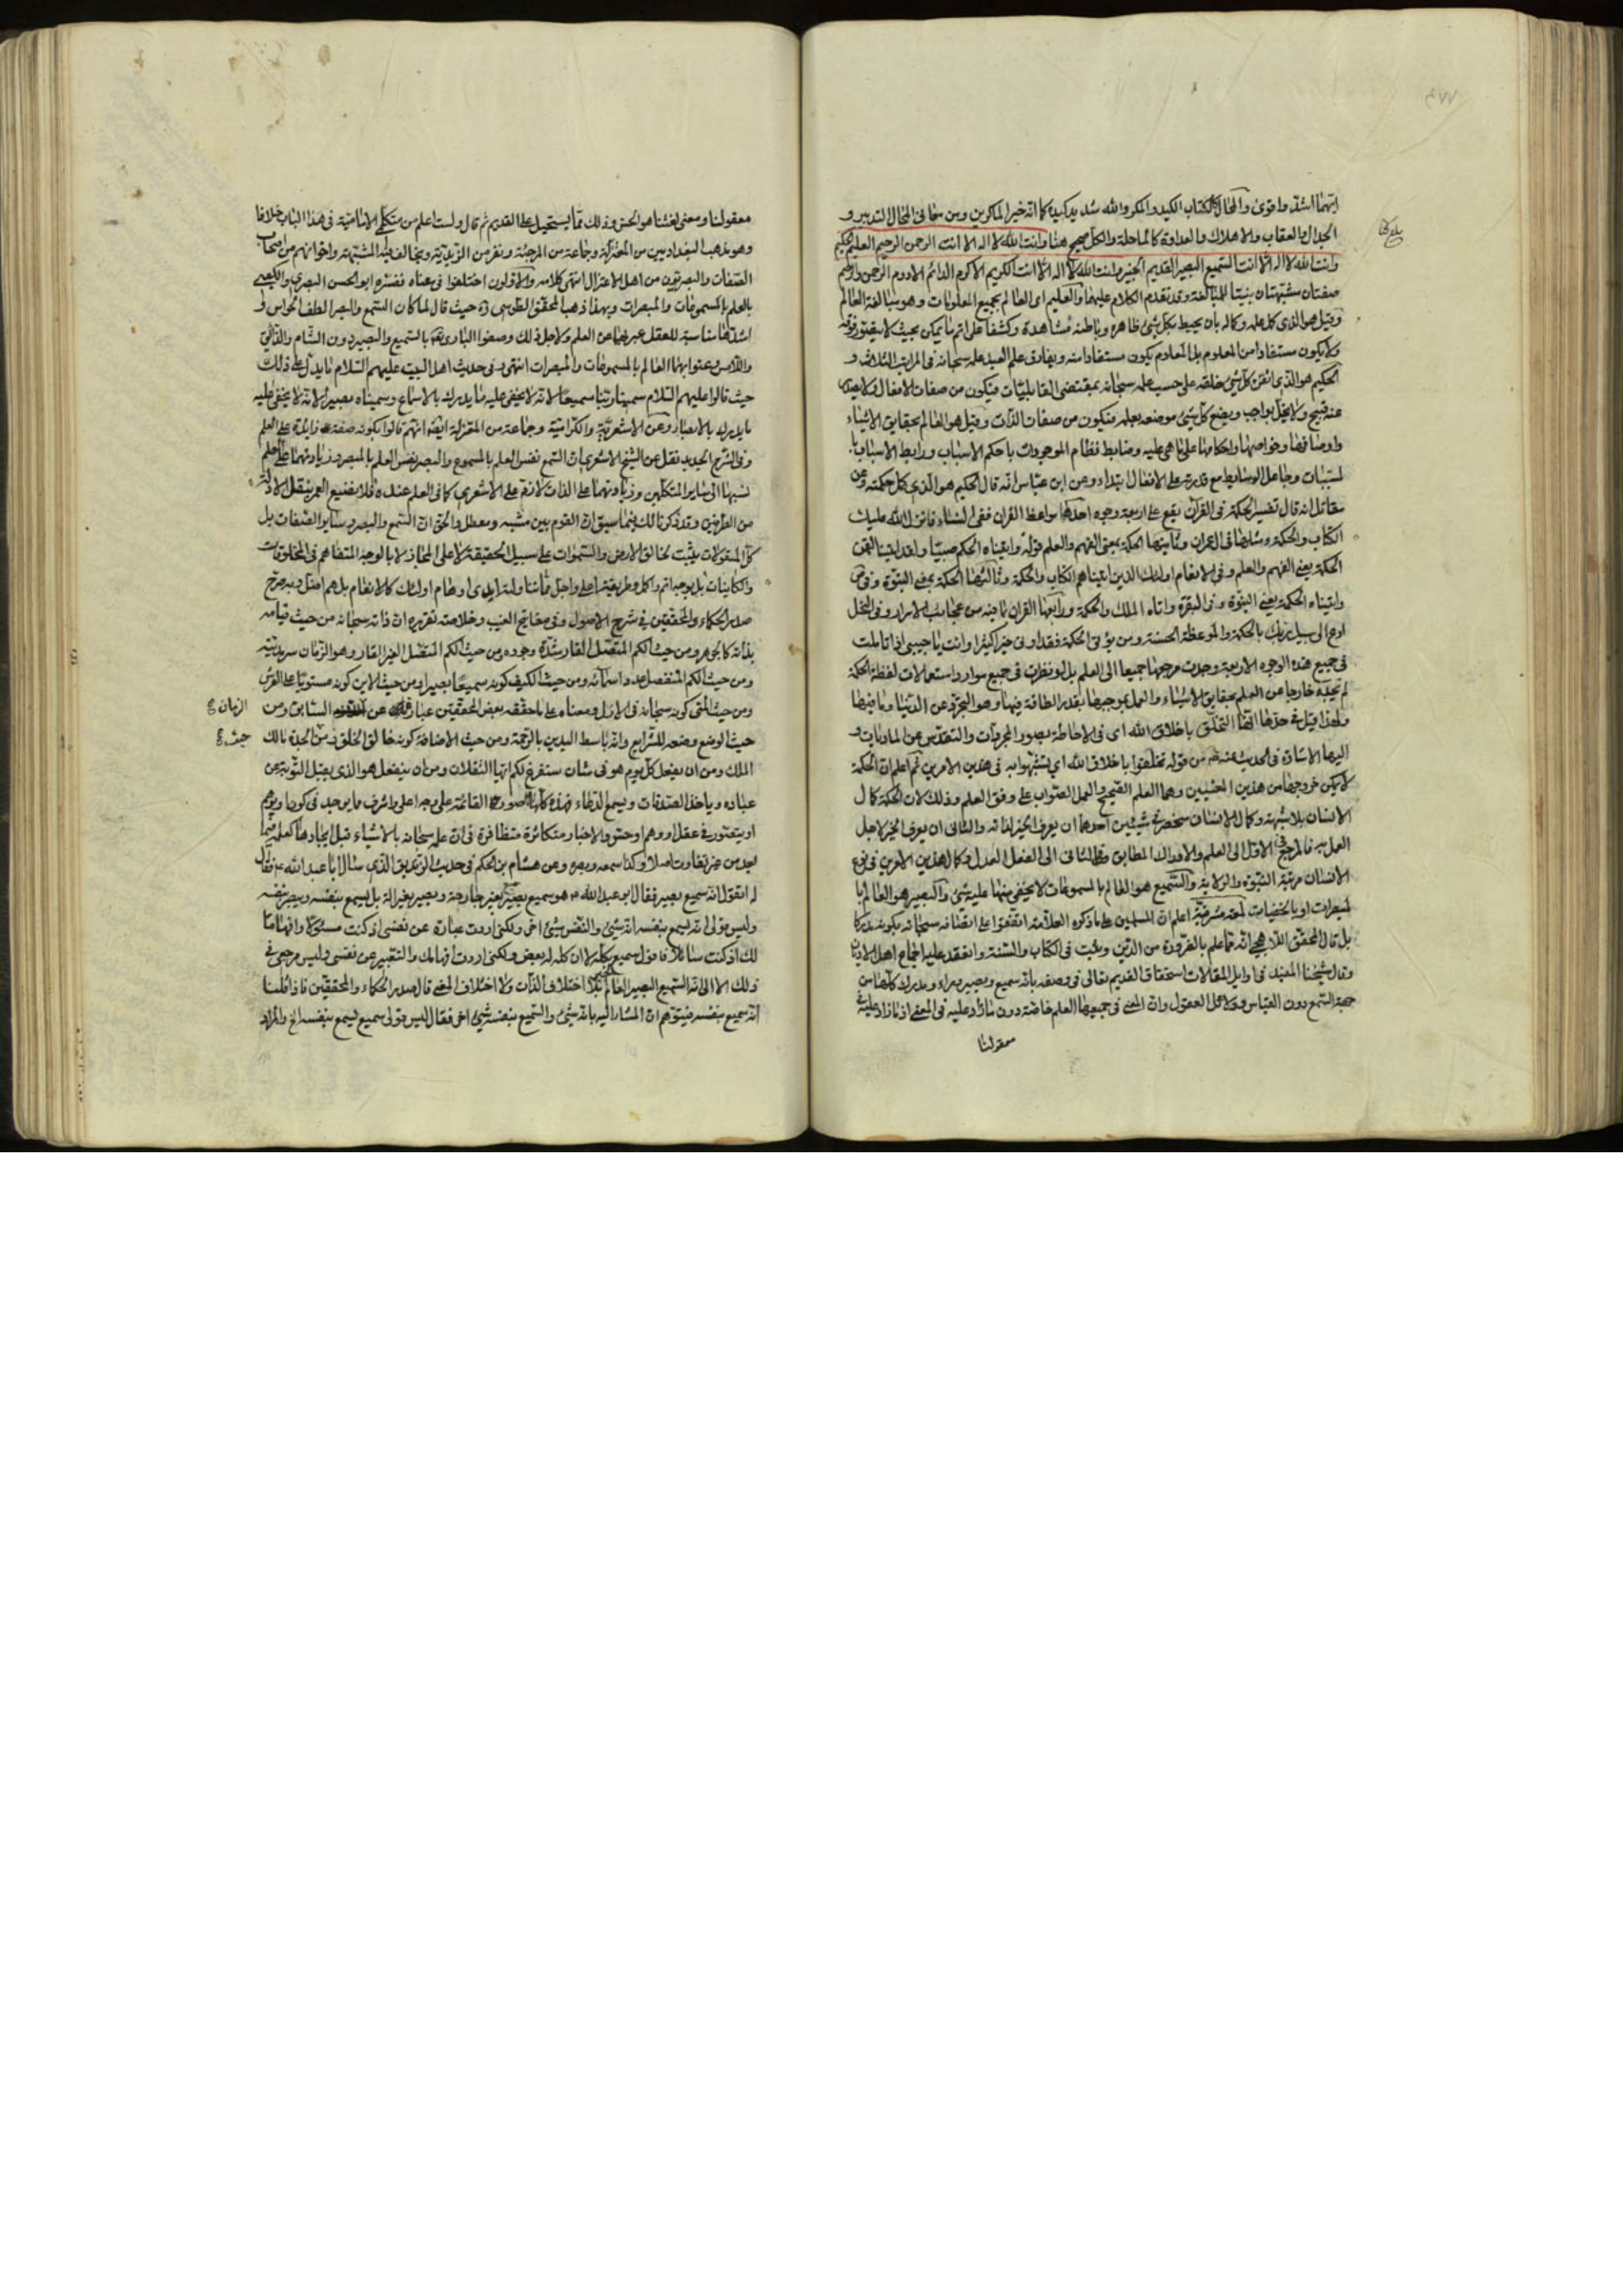 ايهما اشد واقوى والمحال ككتاب الكيد والمكر والله شديد كيده كما انه خير الماكرين ومن معاني المحال التدبير و
الجدال والعقاب والاهلاك والعداوة كالمماحلة والكل صحيح هنا وانت الله لا اله الا انت الرحمن الرحيم العليم الحكيم
وانت الله لا اله الا انت السميع البصير القديم الخبير وانت الله لا اله الا انت الكريم الاكرم الدائم الادوم الرحمن والرحيم
صفتان مشبهتان بنيتا للمبالغة وقد تقدم الكلام عليهما والعليم اى العالم بجميع المعلومات وهو مبالغة العالم
وقيل هو الذى كمل علمه وكماله بان يحيط بكل شئ ظاهره وباطنه مشاهدة وكشفا على اتم ما يمكن بحيث لا يتصور فوقه
ولا يكون مستفادا من المعلوم بل المعلوم يكون مستفادا منه ويفارق علم العبد علمه سبحانه فى المراتب الثلاث و
الحكيم هو الذى اتقن كل شئ خلقه على حسب علمه سبحانه بمقتضى القابليات فيكون من صفات الافعال ولا يصدر
عنه قبيح ولا يخل بواجب ويضع كل شئ موضعه بعلمه فيكون من صفات الذات وقيل هو العالم بحقايق الاشياء
واوصافها وخواصها واحكامها على ما هى عليه وضابط نظام الموجودات باحكم الاسباب ورابط الاسباب با
لمسببات وجاعل الوسايط مع قدرته على الافعال ابتداء وعن ابن عباس انه قال الحكيم هو الذى كمل حكمته وعن
مقاتل انه قال تفسير الحكمة فى القرآن يقع على اربعة وجوه احدها مواعظ القرآن ففى النساء وانزل الله عليك
الكتاب والحكمة ومثلها فى ال عمران وثانيها الحكمة بمعنى الفهم والعلم قوله واتيناه الحكم صبيا ولقد اتينا لقمن
الحكمة يعنى الفهم والعلم وفى الانعام اولئك الذين اتيناهم الكتاب والحكمة وثالثها الحكمة بمعنى النبوة وفى ص
واتيناه الحكمة يعنى النبوة وفى البقرة واتاه الملك والحكمة ورابعها القرآن بما فيه من عجايب الاسرار وفى النحل
ادع الى سبيل ربك بالحكمة والموعظة الحسنة ومن يؤتى الحكمة فقد اوتى خيرا كثيرا وانت يا حبيبى اذا تاملت
فى جميع هذه الوجوه الاربعة وجدت مرجعها جميعا الى العلم بل لو نظرت فى جميع موارد استعمالات لفظة الحكمة
لم تجده خارجا عن العلم بحقايق الاشياء والعمل بموجبها بقدر الطاقة فيها وهو التجرد عن الدنيا وما فيها
ولهذا قيل فى حدها انها التخلق باخلاق الله اى فى الاحاطة بصور المجردات والتقدس عن الماديات و
اليها الاشارة فى الحديث عنه من قوله تخلقوا باخلاق الله اى تشبهوا به فى هذين الامرين ثم اعلم ان الحكمة
لا يمكن خروجها من هذين المعنيين وهما العلم الصحيح والعمل الصواب على وفق العلم وذلك لان الحكمة كمال
الانسان بلا شبهة وكمال الانسان منحصر فى شيئين احدهما ان يعرف الخير لذاته والثانى ان يعرف الخير لاجل
العمل به فالمرجع فى الاول الى العلم والادراك المطابق وفى الثانى الى الفعل العدل وكمال هذين الامرين فى نوع
الانسان مرتبة النبوة والولاية والسميع هو العالم بالمسموعات لا يخفى منها عليه شئ والبصير هو العالم با
لمبصرات او بالخفيات لمعة مشرقية اعلم ان المسلمين على ما ذكره العلامة اتفقوا على اتصافه سبحانه بكونه مدركا
بل قال المحقق اللاهجى انه مما علم بالضرورة من الدين وثبت فى الكتاب والسنة وانعقد عليه اجماع اهل الاديان
وقال شيخنا المفيد فى اوايل المقالات استحقاق القديم تعالى فى وصفه بانه سميع وبصير وراء ومدرك كلها من
جهة السمع دون القياس ودلائل العقول وان المعنى فى جميعها العلم خاصة دون ما زاد عليه فى المعنى اذ ما زاد عليه فى
معقولنا
معقولنا ومعنى لغتنا هو الحس وذلك مما يستحيل على القديم ثم قال ولست اعلم من متكلمى الامامية فى هذا الباب خلافا
وهو مذهب البغداديين من المعتزلة وجماعة من المرجئة ونفر من الزيدية ويخالف فيه المشبهة واخوانهم من اصحاب
الصفات والبصريون من اهل الاعتزال انتهى كلامه والاولون اختلفوا فى معناه ففسره ابو الحسن البصرى والكعبى
بالعلم بالمسموعات والمبصرات وبهذا ذهب المحقق الطوسى ره حيث قال لما كان السمع والبصر الطف الحواس و
اشدها مناسبة للعقل عبر بهما عن العلم ولاجل ذلك وصفوا البارى بالسميع والبصير دون الشام والذائق
واللامس وعنوا بهما العالم بالمسموعات والمبصرات انتهى وفى حديث اهل البيت عليهم السلام ما يدل على ذلك
حيث قالوا عليهم السلام سمينا ربنا سميعا لانه لا يخفى عليه ما يدرك بالاسماع وسميناه بصيرا لانه لا يخفى عليه
ما يدرك بالابصار وعن الاشعرية والكرامية وجماعة من المعتزلة ايضا انهم قالوا بكونه صفة زايدة على العلم
وفى الشرح الجديد نقل عن الشيخ الاشعرى ان السمع نفس العلم بالمسموع والبصر نفس العلم بالمبصر وزيادتهما على العلم
نسبها الى ساير المتكلمين وزيادتهما على الذات لازم على الاشعرى كما فى العلم عنده فلا نضيع العمر بنقل الادلة
من الطرفين وقد ذكرنا لك فيما سبق ان القوم بين مشبه ومعطل والحق ان السمع والبصر وساير الصفات بل
كل المقولات يثبت لخالق الارض والسموات على سبيل الحقيقة لا على المجاز لا بالوجه المتفاهم فى المخلوقات
والكاينات بل بوجه اتم واكمل وطريقة اعلى واجل مما تناولته ايدى اوهام اولئك كالانعام بل هم اضل وبه صرح
صدر الحكماء والمحققين فى شرح الاصول وفى مفاتيح الغيب وخلاصة تقريره ان ذاته سبحانه من حيث قيامه
بذاته كالجوهر ومن حيث الكم المتصل القار شدة وجوده ومن حيث الكم المتصل الغير القار وهو الزمان سرمديته
ومن حيث الكم المنفصل عدد اسمائه ومن حيث الكيف كونه سميعا بصيرا ومن حيث الاين كونه مستويا على العرش
ومن حيث المتى كونه سبحانه فى الازل ومعناه على ما حققه بعض المحققين عبارة عن السابق ومن
الزمان
حيث الوضع وضعه للشرايع وانه باسط اليدين بالرحمة ومن حيث الاضافة كونه خالق الخلق ومن الجدة مالك
حيث
الملك ومن ان يفعل كل يوم هو فى شان سنفرغ لكم ايها الثقلان ومن ان ينفعل هو الذى يقبل التوبة عن
عباده وياخذ الصدقات ويسمع الدعاء فهذه كلها القائمة على وجه اعلى واشرف مما يوجد فى كون او يوهم
او يتصور فى عقل او وهم او حس والاخبار متكاثرة متظافرة فى ان علمه سبحانه بالاشياء قبل ايجادها كعلمه بها
بعد من غير تفاوت اصلا وكذا سمعه وبصره وعن هشام بن الحكم فى حديث الزنديق الذى سال ابا عبد الله ع فقال
له اتقول انه سميع بصير فقال ابو عبد الله ع هو سميع بصير سميع بغير جارحة وبصير بغير الة بل يسمع بنفسه ويبصر بنفسه
وليس قولى انه يسمع بنفسه انه شئ والنفس شئ اخر ولكنى اردت عبارة عن نفسى اذ كنت مسئولا وافهاما
لك اذ كنت سائلا فاقول سميع بكله لا ان كله له بعض ولكنى اردت افهامك والتعبير عن نفسى وليس مرجعى فى
ذلك الا الى انه السميع البصير العالم الخبير بلا اختلاف الذات ولا اختلاف المعنى قال صدر الحكماء والمحققين فاذا قلنا
انه سميع بنفسه فيتوهم ان المشار اليه بانه شئ والسميع بنفسه شئ اخر فقال ليس قولى سميع يسمع بنفسه الخ والمراد